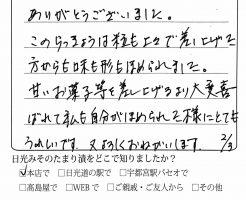 ありがとうございました。
このらっきょうは粒も上々で差し上げた
方からも味も形もほめられました。
甘いお菓子等を差し上げるより大変喜
ばれて私も自分がほめられた様にとても
うれしいです。又よろしくおねがいします。 2/3
日光みそのたまり漬をどこで知りましたか?
☑本店で □日光道の駅で □宇都宮駅パセオで
□高島屋で □WEBで □ご親戚・ご友人から □その他